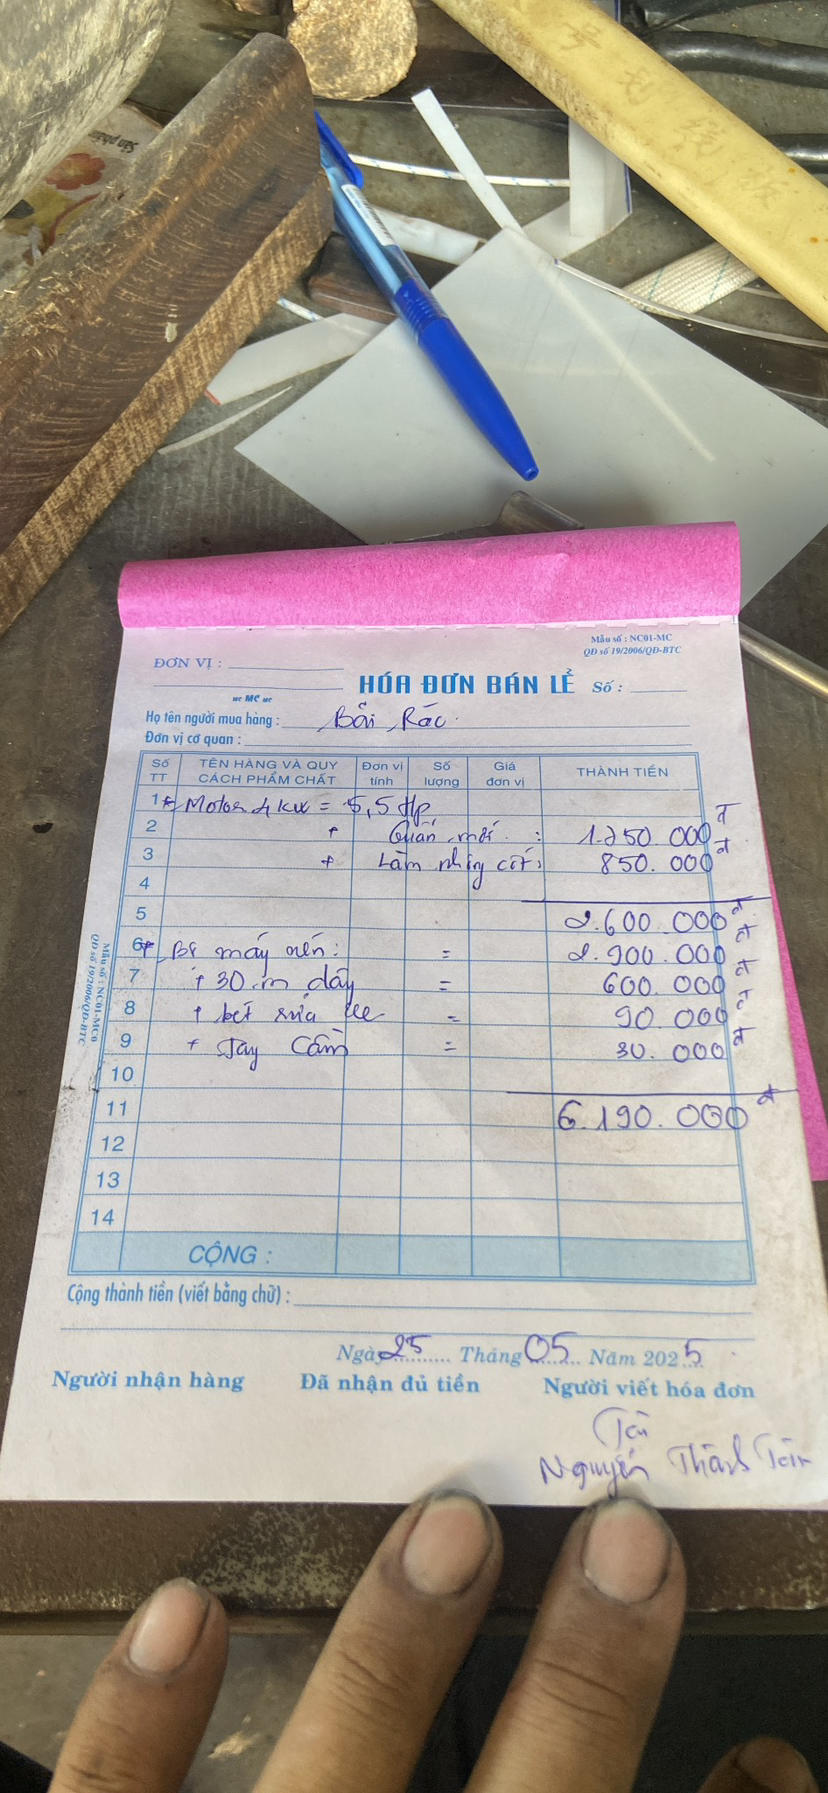 号 划 线 板
Sản phẩm
Mẫu số : NC01-MC
QĐ số 19/2006/QĐ-BTC
ĐƠN VỊ :
HÓA ĐƠN BÁN LẺ Số :
MC
Họ tên người mua hàng : Bãi Rác
Đơn vị cơ quan :
Số TT TÊN HÀNG VÀ QUY CÁCH PHẨM CHẤT Đơn vị tính Số lượng Giá đơn vị THÀNH TIỀN
1 * Motor 4 kw = 5,5 Hp
2 + Quấn mới : 1.750.000đ
3 + Làm cốt : 850.000đ
4
5 2.600.000đ
6 * máy nén : = 2.900.000đ
7 + 30 m dây = 600.000đ
8 + béc rửa xe = 90.000đ
9 + Tay cầm = 30.000đ
10
11 6.190.000đ
12
13
14
CỘNG :
Mẫu số : NC01-MC
QĐ số 19/2006/QĐ-BTC
Cộng thành tiền (viết bằng chữ) :
Ngày 25 Tháng 05 Năm 2025
Người nhận hàng Đã nhận đủ tiền Người viết hóa đơn
Nguyễn Thành